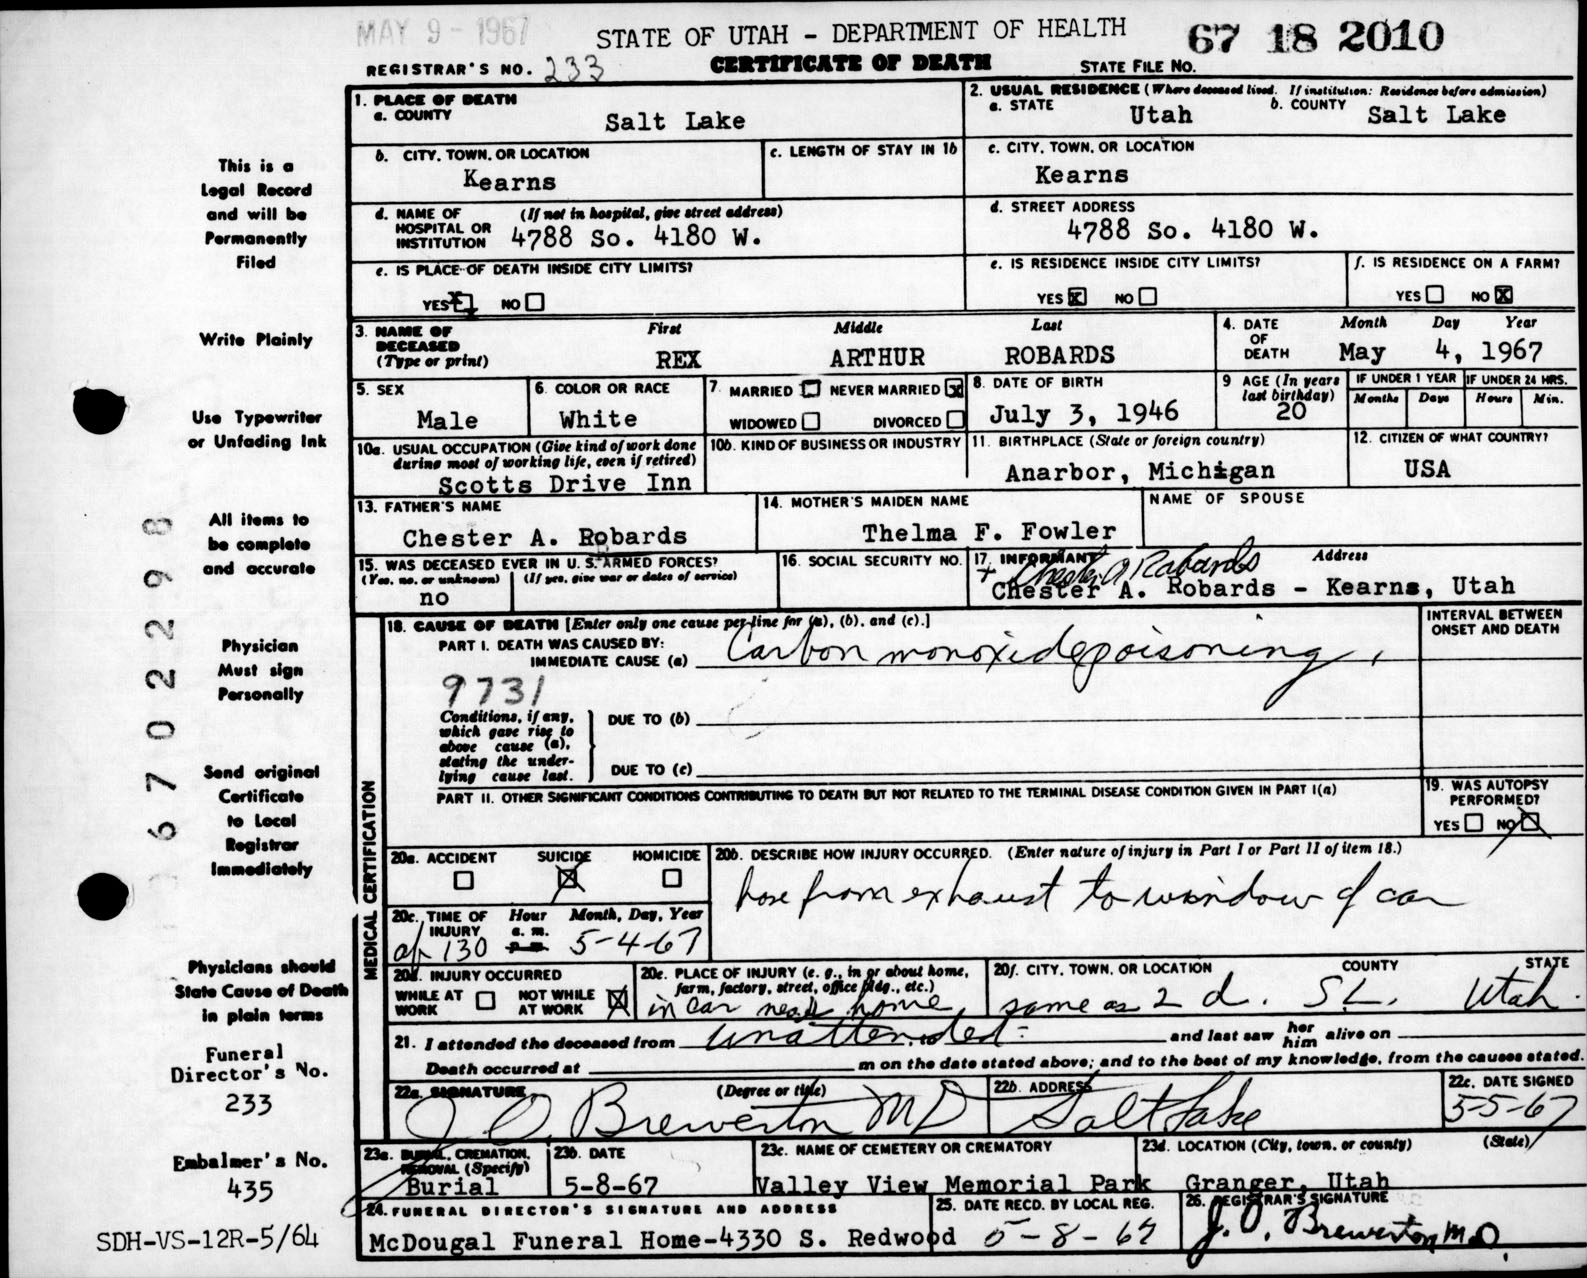 MAY 9 - 1967
STATE OF UTAH - DEPARTMENT OF HEALTH
67 18 2010
REGISTRAR'S NO. 233
CERTIFICATE OF DEATH
STATE FILE NO.
This is a
Legal Record
and will be
Permanently
Filed
Write Plainly
Use Typewriter
or Unfading Ink
All items to
be complete
and accurate
Physician
Must sign
Personally
Send original
Certificate
to Local
Registrar
Immediately
Physicians should
State Cause of Death
in plain terms
Funeral
Director's No.
233
Embalmer's No.
435
SDH-VS-12R-5/64
6702298
1. PLACE OF DEATH
a. COUNTY
Salt Lake
2. USUAL RESIDENCE (Where deceased lived. If institution: Residence before admission)
a. STATE Utah b. COUNTY Salt Lake
b. CITY, TOWN, OR LOCATION
Kearns
c. LENGTH OF STAY IN 1b
c. CITY, TOWN, OR LOCATION
Kearns
d. NAME OF HOSPITAL OR INSTITUTION (If not in hospital, give street address)
4788 So. 4180 W.
d. STREET ADDRESS
4788 So. 4180 W.
e. IS PLACE OF DEATH INSIDE CITY LIMITS?
YES X NO
e. IS RESIDENCE INSIDE CITY LIMITS?
YES X NO
f. IS RESIDENCE ON A FARM?
YES NO X
3. NAME OF DECEASED (Type or print)
First Middle Last
REX ARTHUR ROBARDS
4. DATE OF DEATH
Month Day Year
May 4, 1967
5. SEX
Male
6. COLOR OR RACE
White
7. MARRIED NEVER MARRIED X
WIDOWED DIVORCED
8. DATE OF BIRTH
July 3, 1946
9 AGE (In years last birthday)
20
IF UNDER 1 YEAR
Months Days
IF UNDER 24 HRS.
Hours Min.
10a. USUAL OCCUPATION (Give kind of work done
during most of working life, even if retired)
Scotts Drive Inn
10b. KIND OF BUSINESS OR INDUSTRY
11. BIRTHPLACE (State or foreign country)
Anarbor, Michigan
12. CITIZEN OF WHAT COUNTRY?
USA
13. FATHER'S NAME
Chester A. Robards
14. MOTHER'S MAIDEN NAME
Thelma F. Fowler
NAME OF SPOUSE
15. WAS DECEASED EVER IN U. S. ARMED FORCES?
(Yes, no, or unknown) (If yes, give war or dates of service)
no
16. SOCIAL SECURITY NO.
17. INFORMANT Address
Chester A Robards
Chester A. Robards - Kearns, Utah
MEDICAL CERTIFICATION
18. CAUSE OF DEATH [Enter only one cause per line for (a), (b), and (c).]
PART I. DEATH WAS CAUSED BY:
IMMEDIATE CAUSE (a) Carbon monoxide poisoning,
INTERVAL BETWEEN
ONSET AND DEATH
9731
Conditions, if any,
which gave rise to
above cause (a),
stating the under-
lying cause last.
DUE TO (b)
DUE TO (c)
PART II. OTHER SIGNIFICANT CONDITIONS CONTRIBUTING TO DEATH BUT NOT RELATED TO THE TERMINAL DISEASE CONDITION GIVEN IN PART I(a)
19. WAS AUTOPSY
PERFORMED?
YES NO X
20a. ACCIDENT SUICIDE HOMICIDE
X
20b. DESCRIBE HOW INJURY OCCURRED. (Enter nature of injury in Part I or Part II of item 18.)
hose from exhaust to window of car
20c. TIME OF INJURY Hour Month, Day, Year
a. m.
p. m.
130 5-4-67
20d. INJURY OCCURRED
WHILE AT WORK NOT WHILE AT WORK X
20e. PLACE OF INJURY (e. g., in or about home,
farm, factory, street, office bldg., etc.)
in car near home
20f. CITY, TOWN, OR LOCATION COUNTY STATE
same as 2 d. S L. Utah.
21. I attended the deceased from unattended and last saw her him alive on
Death occurred at m on the date stated above; and to the best of my knowledge, from the causes stated.
22a. SIGNATURE (Degree or title)
J O. Brewerton MD
22b. ADDRESS
Salt Lake
22c. DATE SIGNED
5-5-67
23a. BURIAL, CREMATION,
REMOVAL (Specify)
Burial
23b. DATE
5-8-67
23c. NAME OF CEMETERY OR CREMATORY
Valley View Memorial Park
23d. LOCATION (City, town, or county) (State)
Granger, Utah
24. FUNERAL DIRECTOR'S SIGNATURE AND ADDRESS
McDougal Funeral Home-4330 S. Redwood
25. DATE RECD. BY LOCAL REG.
5-8-67
26. REGISTRAR'S SIGNATURE
J. O. Brewerton M.D.